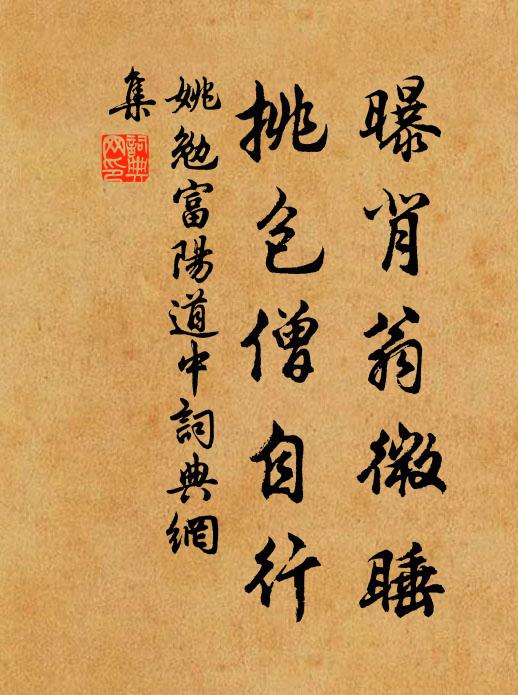 曝背翁微睡
挑包僧自行
姚勉富陽道中詞典網
集
詞典網印